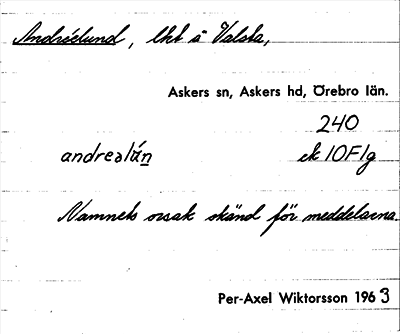 Andréelund, lht å Valsta,
Askers sn, Askers hd, Örebro län.
240
andrealún
ek 10F1g
Namnets orsak okänd för meddelarna.
Per-Axel Wiktorsson 1963